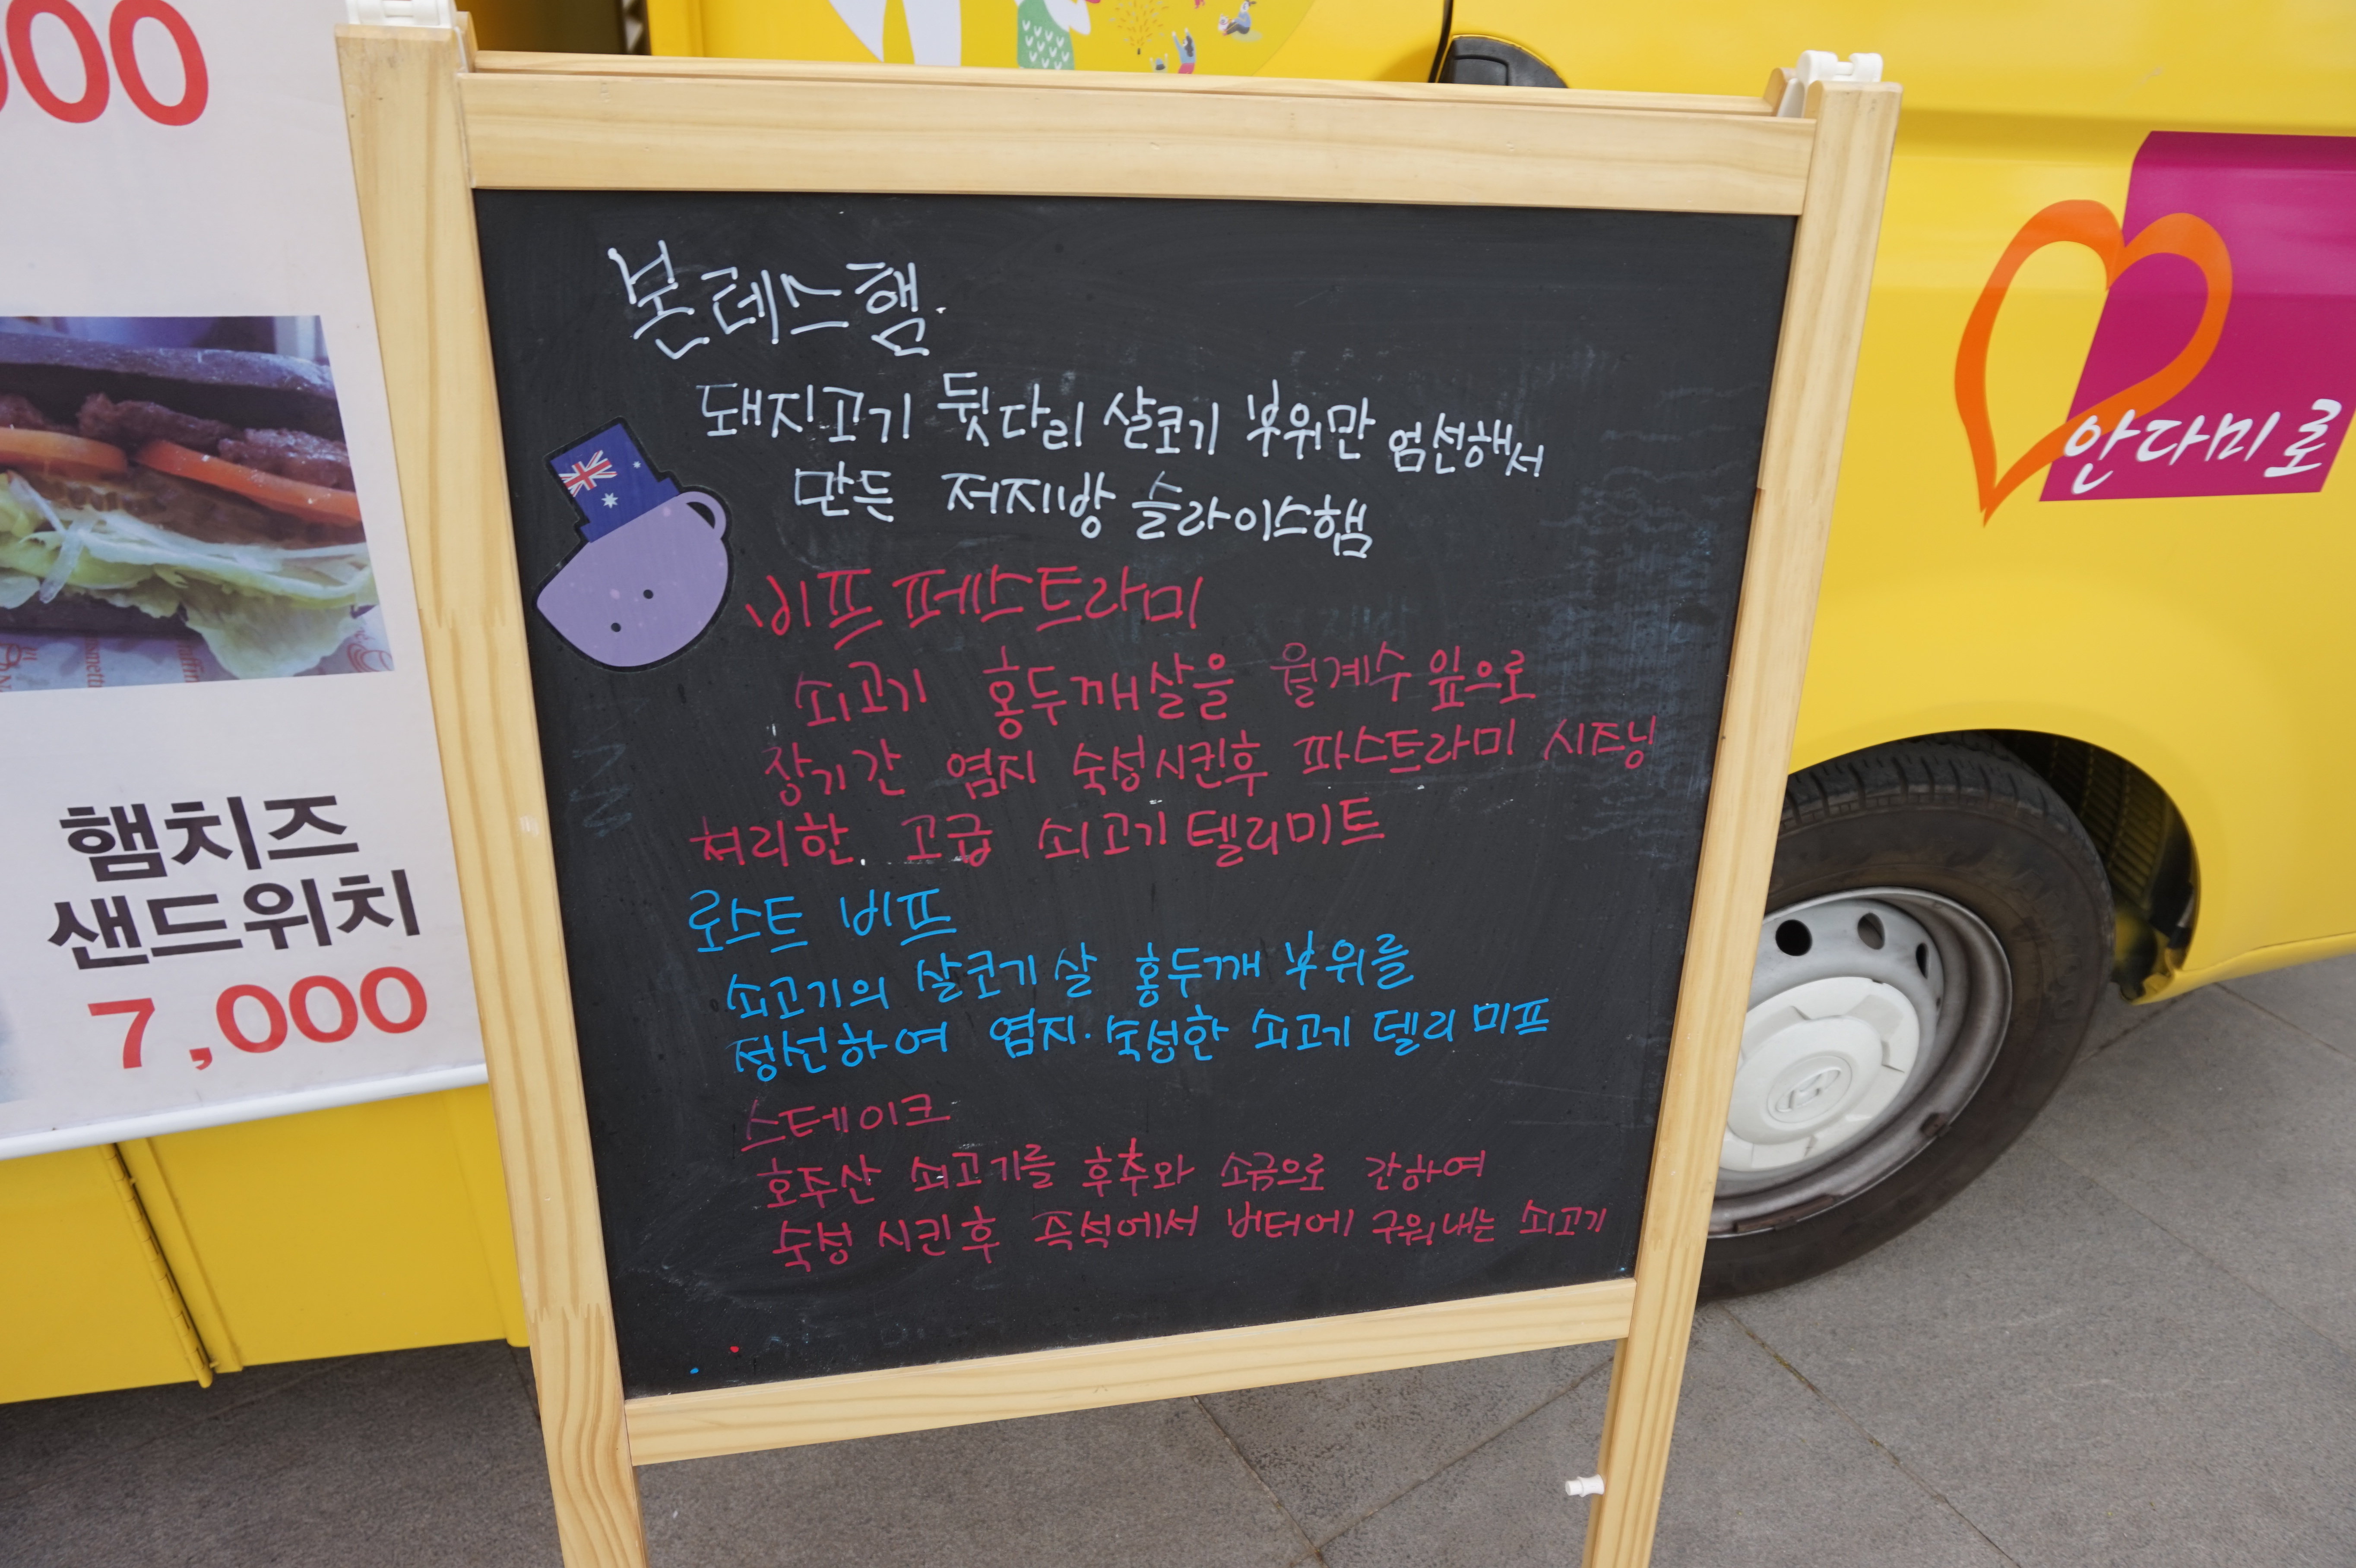 000
본레스햄
돼지고기 뒷다리 살코기 부위만 엄선해서
만든 저지방 슬라이스햄
비프 페스트라미
쇠고기 홍두깨살을 월계수 잎으로
장기간 염지 숙성시킨후 파스트라미 시즈닝
처리한 고급 쇠고기 델리미트
로스트 비프
쇠고기의 살코기 살 홍두깨 부위를
정선하여 염지·숙성한 쇠고기 델리 미프
스테이크
호주산 쇠고기를 후추와 소금으로 간하여
숙성 시킨후 즉석에서 버터에 구워내는 쇠고기
햄치즈
샌드위치
7,000
안다미로